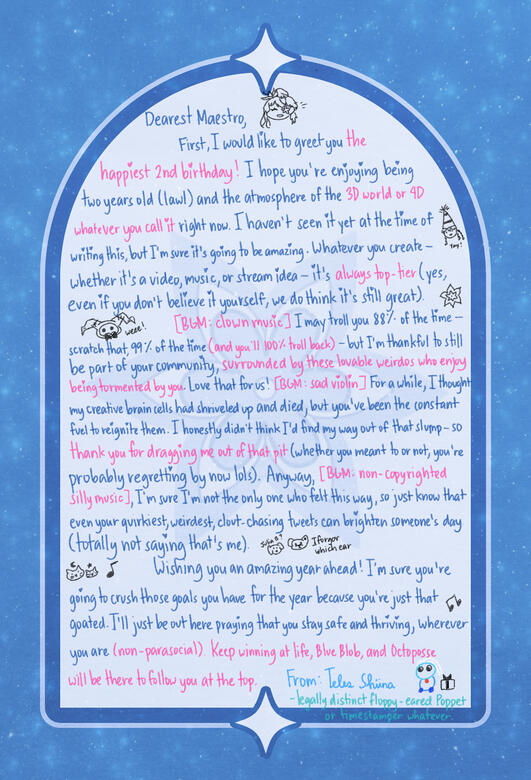 Dearest Maestro,
First, I would like to greet you the
happiest 2nd birthday! I hope you're enjoying being
two years old (lawl) and the atmosphere of the 3D world or 4D
whatever you call it right now. I haven't seen it yet at the time of
writing this, but I'm sure it's going to be amazing. Whatever you create –
yay!
whether it's a video, music, or stream idea – it's always top-tier (yes,
even if you don't believe it yourself, we do think it's still great).
weee!
[BGM: clown music] I may troll you 88% of the time –
scratch that, 99% of the time (and you'll 100% troll back) – but I'm thankful to still
be part of your community, surrounded by these lovable weirdos who enjoy
being tormented by you. Love that for us! [BGM: sad violin] For a while, I thought
my creative brain cells had shriveled up and died, but you've been the constant
fuel to reignite them. I honestly didn't think I'd find my way out of that slump – so
thank you for dragging me out of that pit (whether you meant to or not, you're
probably regretting by now lols). Anyway, [BGM: non-copyrighted
silly music], I'm sure I'm not the only one who felt this way, so just know that
even your quirkiest, weirdest, clout-chasing tweets can brighten someone's day
(totally not saying that's me).
I forgor
which ear
Wishing you an amazing year ahead! I'm sure you're
going to crush those goals you have for the year because you're just that
goated. I'll just be out here praying that you stay safe and thriving, wherever
you are (non-parasocial). Keep winning at life, Blue Blob, and Octoposse
will be there to follow you at the top.
From: Telea Shiina
- legally distinct floppy-eared Poppet
or timestamper whatever.